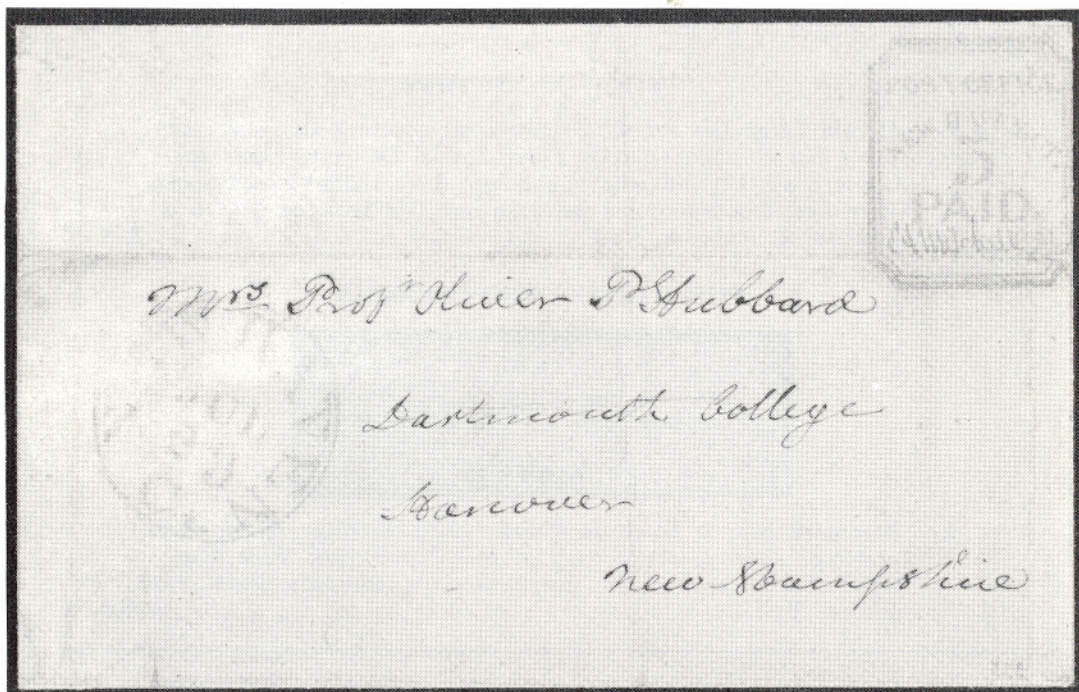 5
PAID
Mrs Profr Oliver P Hubbard
Dartmouth College
Hanover
New Hampshire